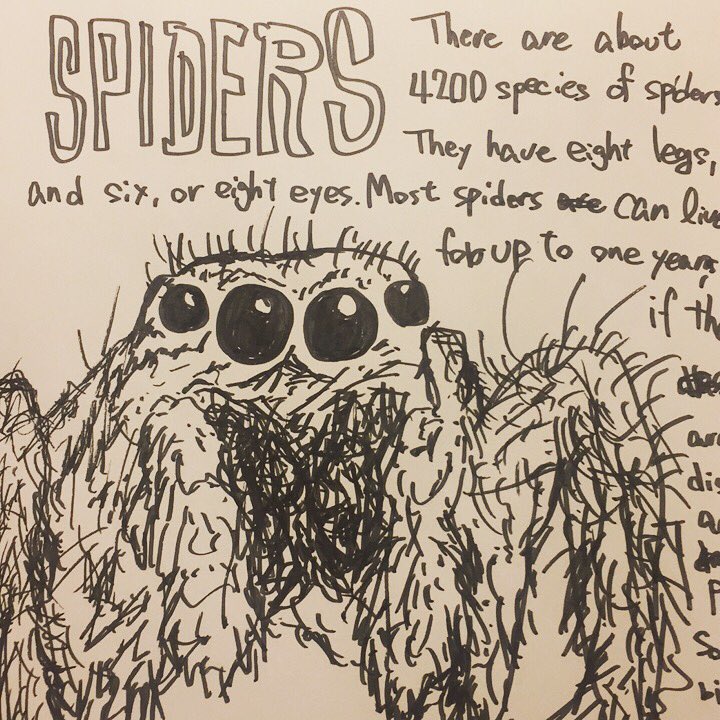 SPIDERS
There are about
4200 species of spiders
They have eight legs,
and six, or eight eyes. Most spiders can live
for up to one year,
if